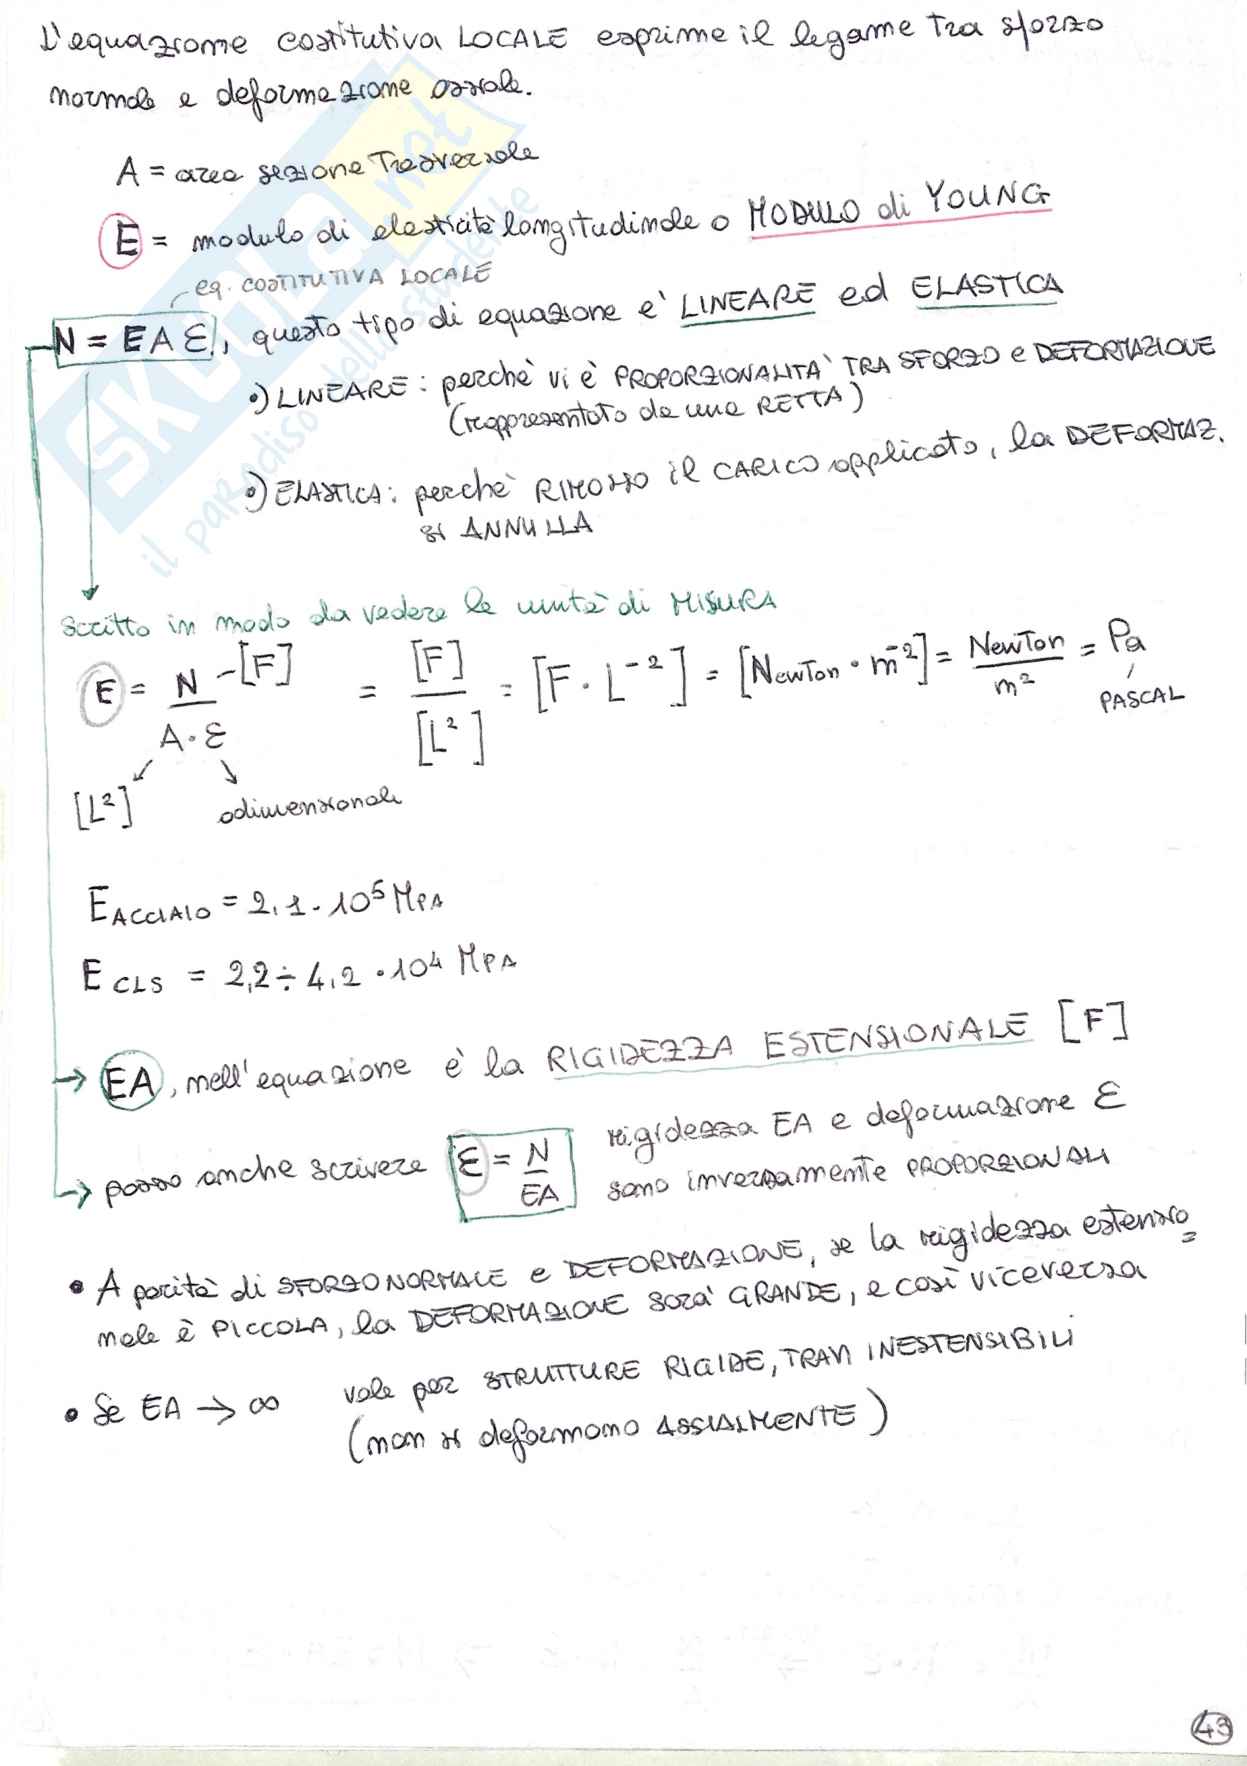 L'equazione costitutiva LOCALE esprime il legame tra sforzo
normale e deformazione assiale.
A = area sezione Trasversale
E = modulo di elasticità longitudinale o MODULO di YOUNG
eq. COSTITUTIVA LOCALE
N = E A ε, questo tipo di equazione e' LINEARE ed ELASTICA
•) LINEARE: perchè vi è PROPORZIONALITA' TRA SFORZO e DEFORMAZIONE
(rappresentato da una RETTA)
•) ELASTICA: perchè RIMOSSO il CARICO applicato, la DEFORMAZ.
si ANNULLA
Scritto in modo da vedere le unità di MISURA
E = N/(A·ε) -[F] = [F]/[L²] = [F · L⁻²] = [NewTon · m⁻²] = NewTon/m² = Pa
PASCAL
[L²] adimensionale
E ACCIAIO = 2,1 · 10⁵ MPA
E CLS = 2,2 ÷ 4,2 · 10⁴ MPA
→ EA, nell'equazione è la RIGIDEZZA ESTENSIONALE [F]
→ posso anche scrivere ε = N/EA rigidezza EA e deformazione ε
sono inversamente PROPORZIONALI
• A parità di SFORZO NORMALE e DEFORMAZIONE, se la rigidezza estensio=
nale è PICCOLA, la DEFORMAZIONE sarà GRANDE, e così viceversa
• Se EA → ∞ vale per STRUTTURE RIGIDE, TRAVI INESTENSIBILI
(non si deformano ASSIALMENTE)
43
SKUOLA.net
il paradiso dello studente